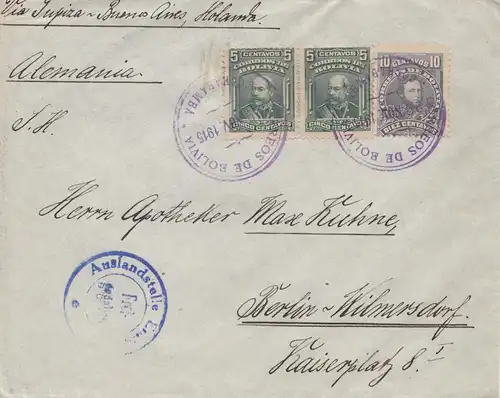 Via Tupiza - Buenos Aires, Holanda
Alemania.
S. H.
5 CENTAVOS 5
CORREOS DE
BOLIVIA
CINCO CENTAVOS
5 CENTAVOS 5
CORREOS DE
BOLIVIA
CINCO CENTAVOS
10 CENTAVOS 10
CORREOS DE BOLIVIA
DIEZ CENTAVOS
CORREOS DE BOLIVIA
1915
Herrn Apotheker Max Kuhne,
Berlin-Wilmersdorf.
Kaiserplatz 8 I
Auslandstelle